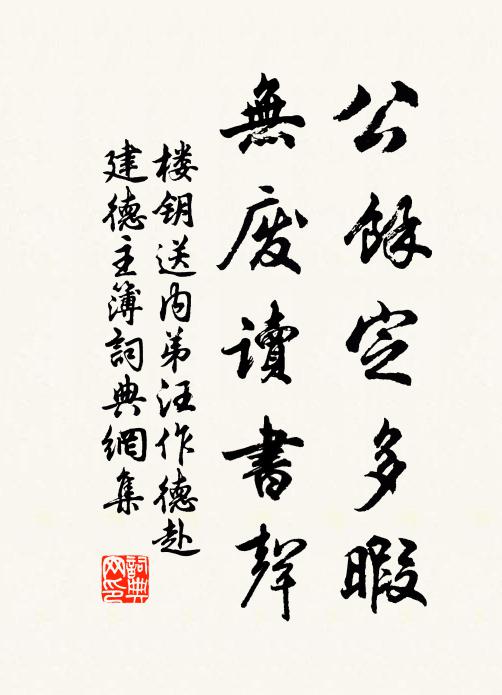 公餘定多暇
無废讀書聲
楼钥送内弟汪作德赴
建德主簿詞典網集
詞典
网印